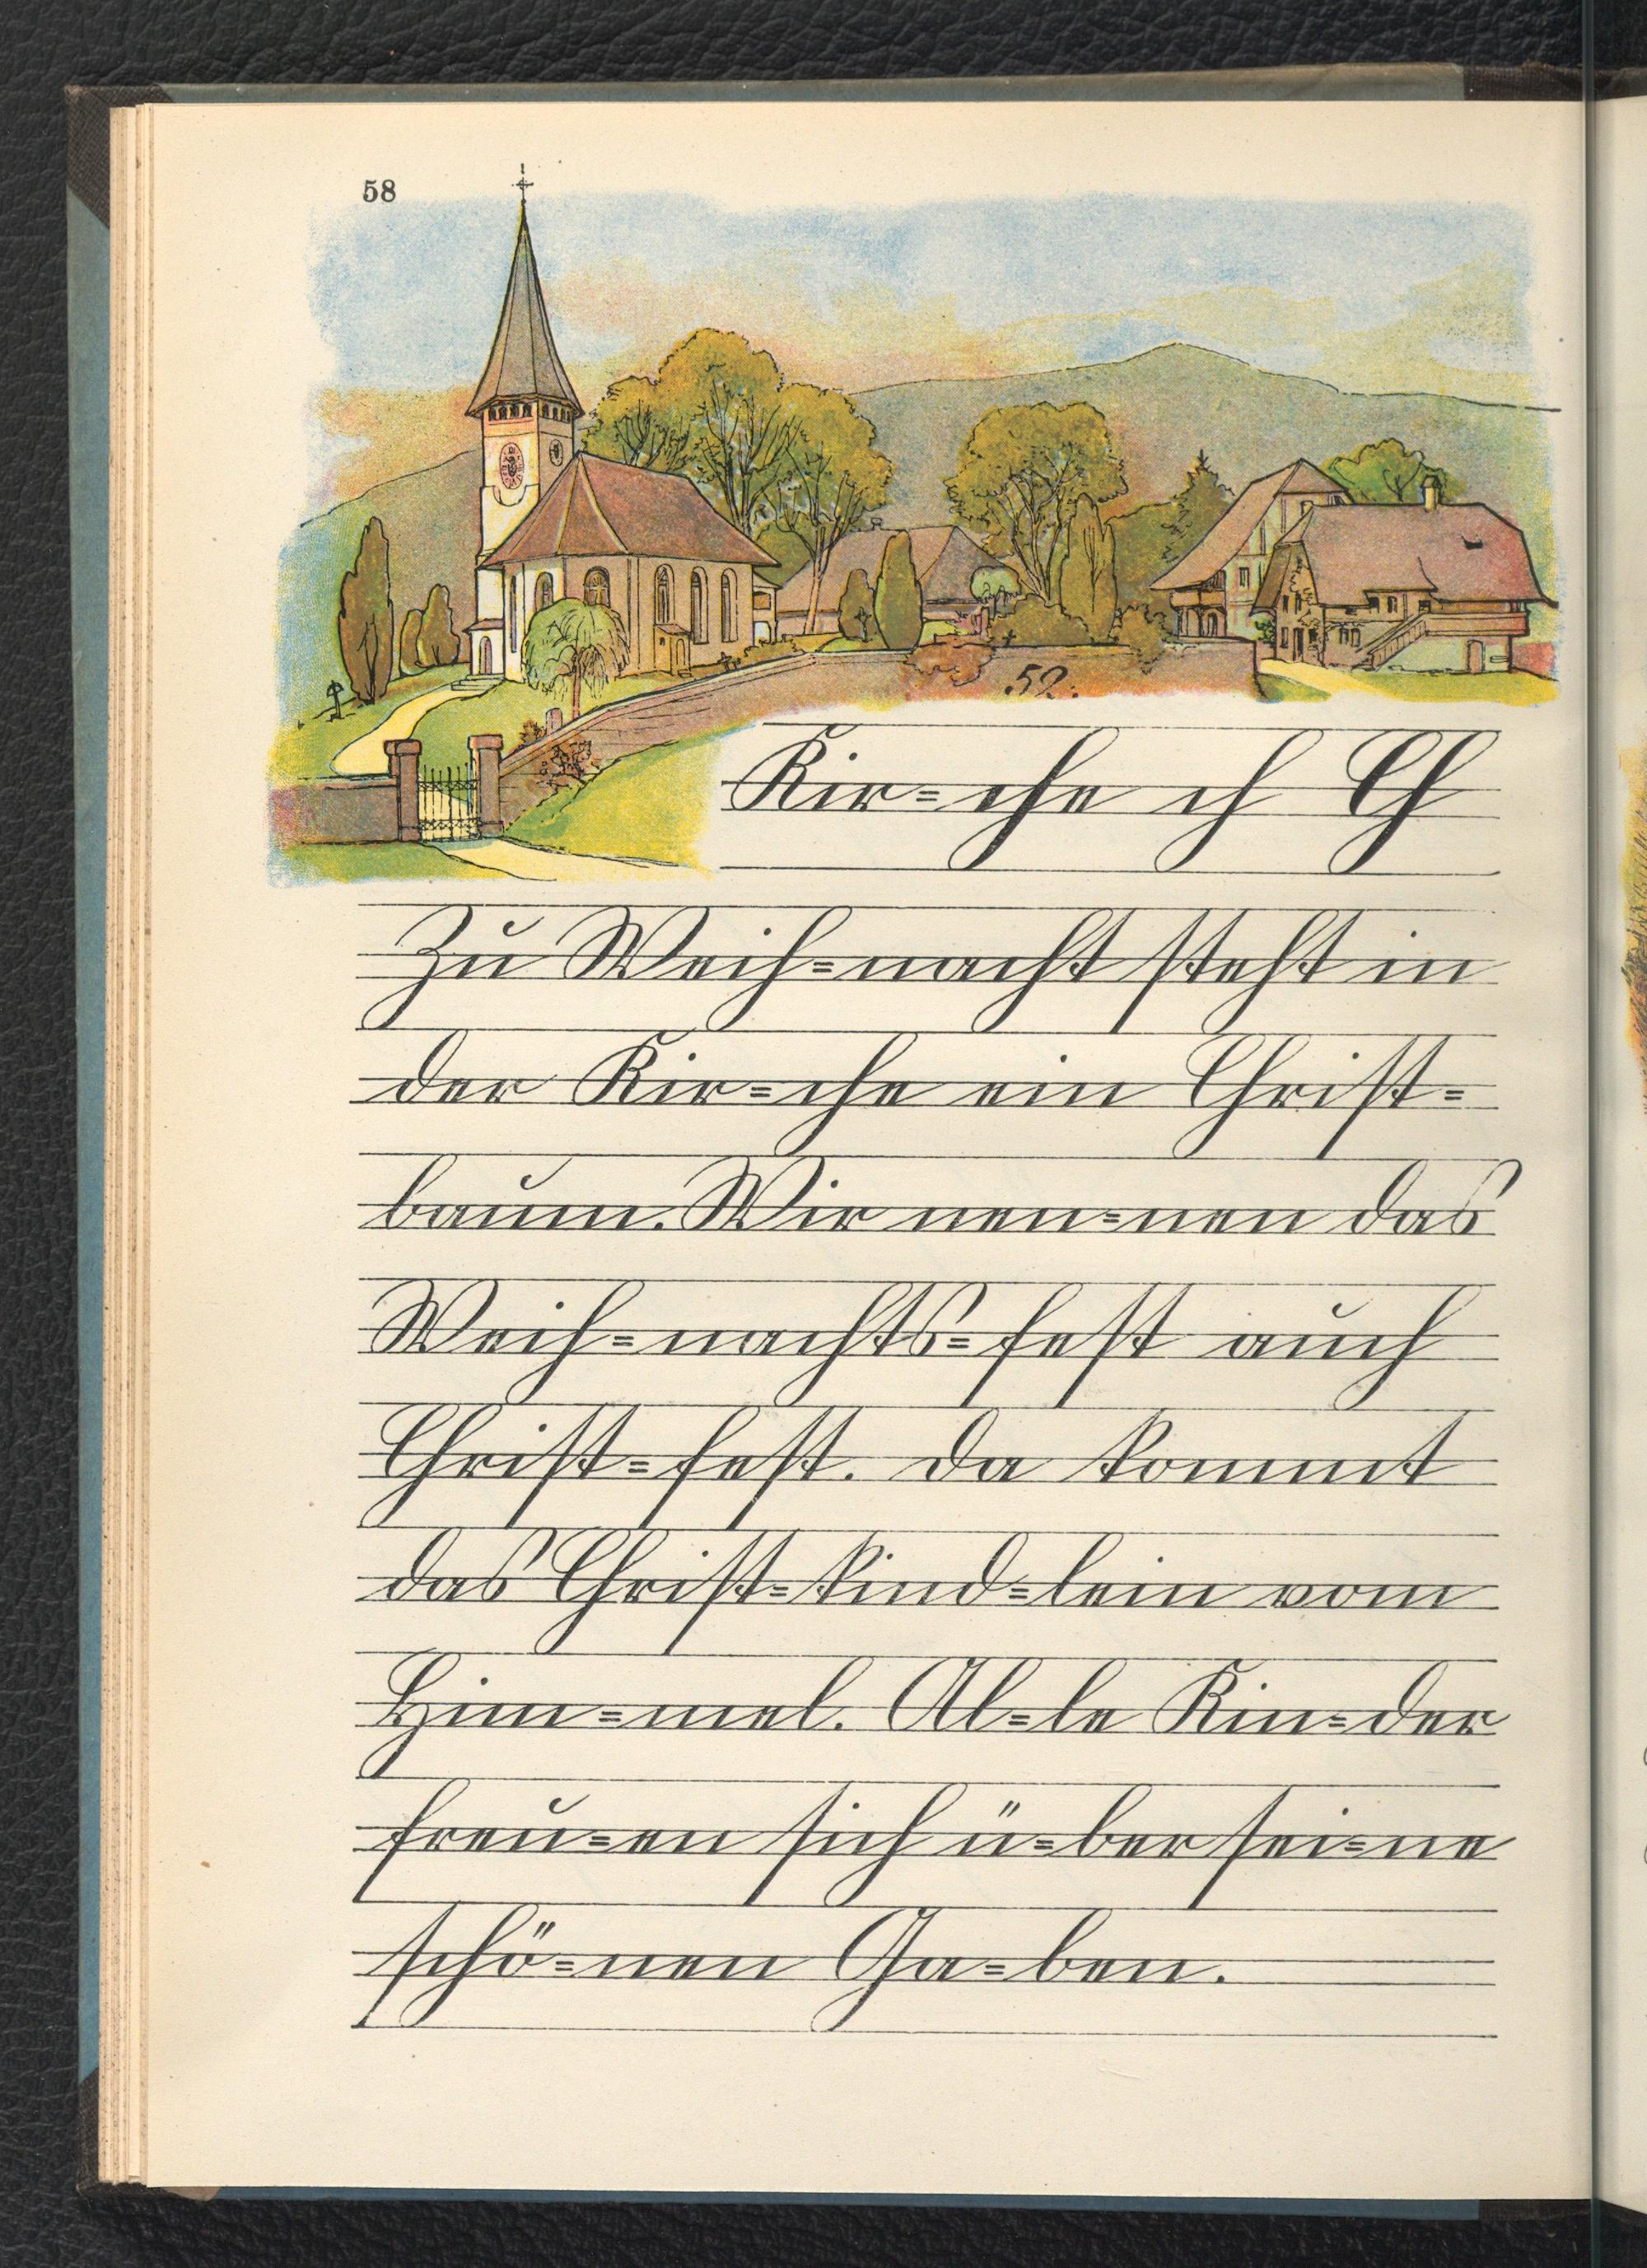 58
52.
Kir=che ch Ch
Zu Weih=nacht steht in
der Kir=che ein Christ=
baum. Wir nen=nen das
Weih=nachts=fest auch
Christ=fest. Da kommt
das Christ=kind=lein vom
Him=mel. Al=le Kin=der
freu=en sich ü=ber sei=ne
schö=nen Ga=ben.